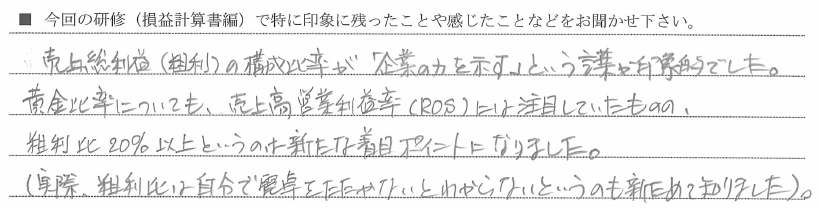 ■ 今回の研修（損益計算書編）で特に印象に残ったことや感じたことなどをお聞かせ下さい。
売上総利益（粗利）の構成比率が「企業の力を示す」という言葉が印象的でした。
黄金比率についても、売上高営業利益率（ROS）には注目していたものの、
粗利比20%以上というのは新たな着目ポイントになりました。
（実際、粗利比は自分で電卓をたたかないとわからないというのも新ためて知りました）。